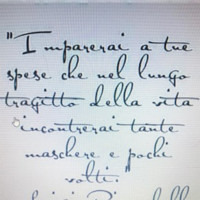 "Imparerai a tue
spese che nel lungo
tragitto della vita
incontrerai tante
maschere e pochi
volti."